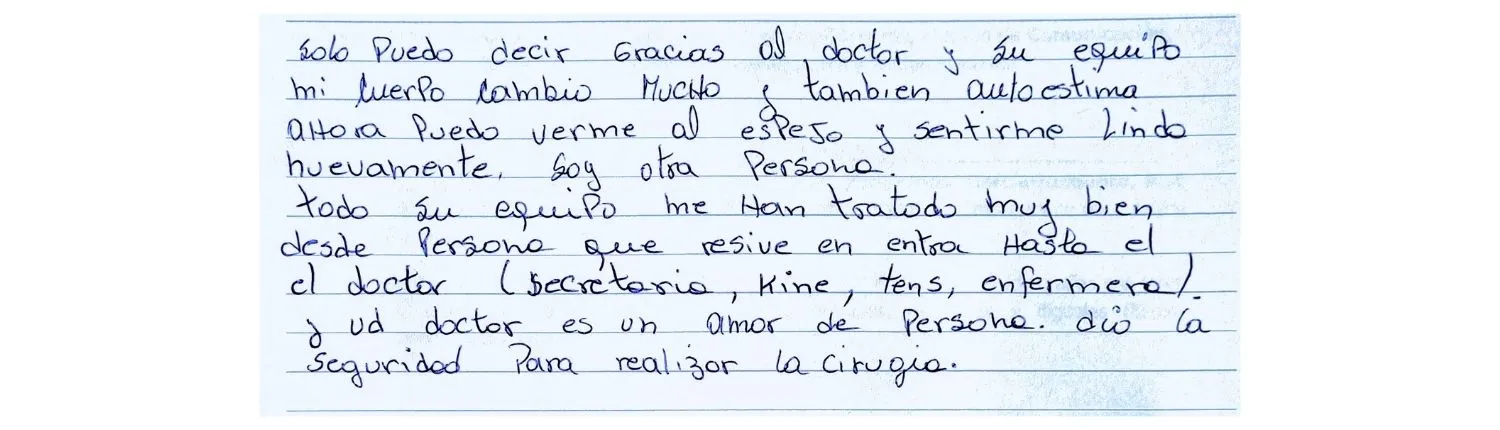 Solo Puedo decir Gracias al doctor y su equipo
mi cuerpo cambio MucHo y tambien autoestima
aHora Puedo verme al espeJo y sentirme Linda
nuevamente, soy otra Persona.
todo su equiPo me Han tratado muy bien
desde Persona que resive en entra Hasta el
el doctor (secretaria, Kine, tens, enfermera).
y ud doctor es un amor de Persona. dio la
seguridad Para realizar la cirugia.